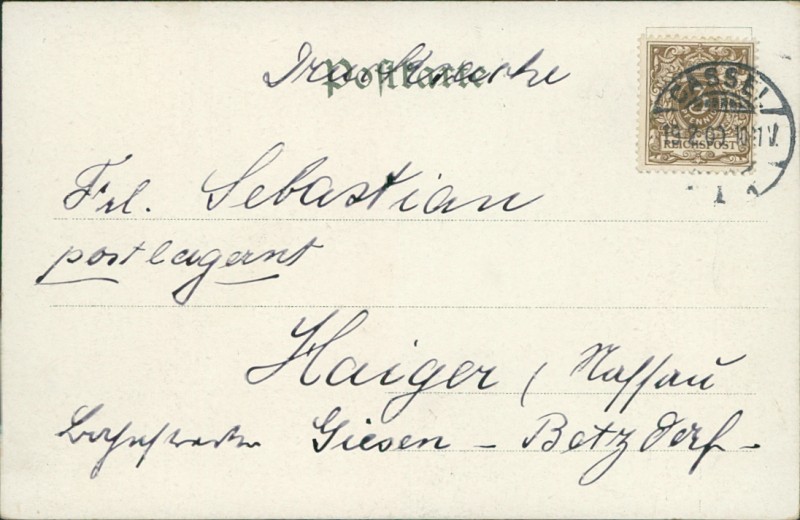 Postkarte
Drucksache
CASSEL
19.2.00.10-11V.
REICHSPOST
3
Frl. Sebastian
postlagernt
Haiger (Nassau
Bahnstrecke Giesen - Betzdorf -